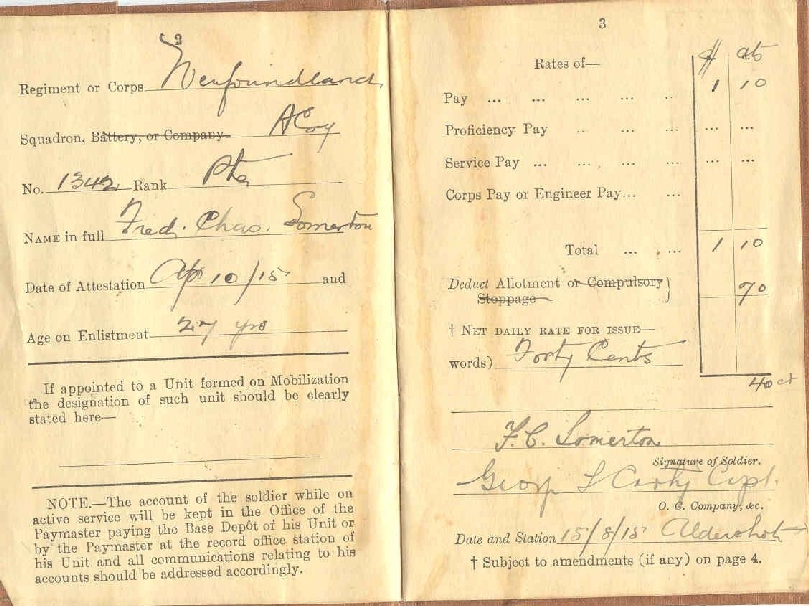 2
Regiment or Corps Newfoundland
Squadron, Battery, or Company A Coy
No. 1342 Rank Pte
NAME in full Fred. Chas. Somerton
Date of Attestation Ap 10/15 and
Age on Enlistment 27 yrs
If appointed to a Unit formed on Mobilization
the designation of such unit should be clearly
stated here—
NOTE.—The account of the soldier while on
active service will be kept in the Office of the
Paymaster paying the Base Depôt of his Unit or
by the Paymaster at the record office station of
his Unit and all communications relating to his
accounts should be addressed accordingly.
3
Rates of— $ cts
Pay ... ... ... ... .. 1 10
Proficiency Pay .. ... ... .. ... ...
Service Pay ... ... ... ... ... ...
Corps Pay or Engineer Pay... ... ...
Total ... ... 1 10
Deduct Allotment or Compulsory
Stoppage } 70
† NET DAILY RATE FOR ISSUE—
words) Forty Cents
40 ct
F. C. Somerton
Signature of Soldier.
Capt.
O. C. Company, &c.
Date and Station 15/8/15 Aldershot
† Subject to amendments (if any) on page 4.